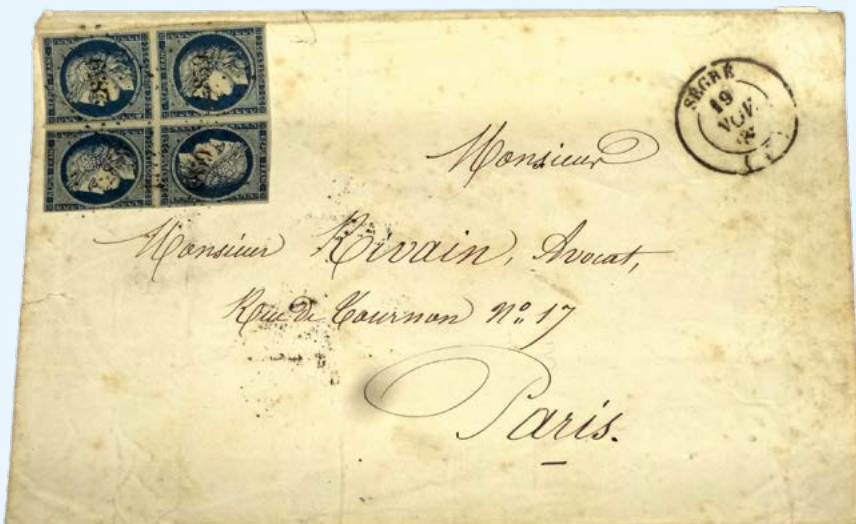 SEGRÉ
19
NOV.
Monsieur
Monsieur Rivain, Avocat,
Rue de Tournon Nº 17
Paris.